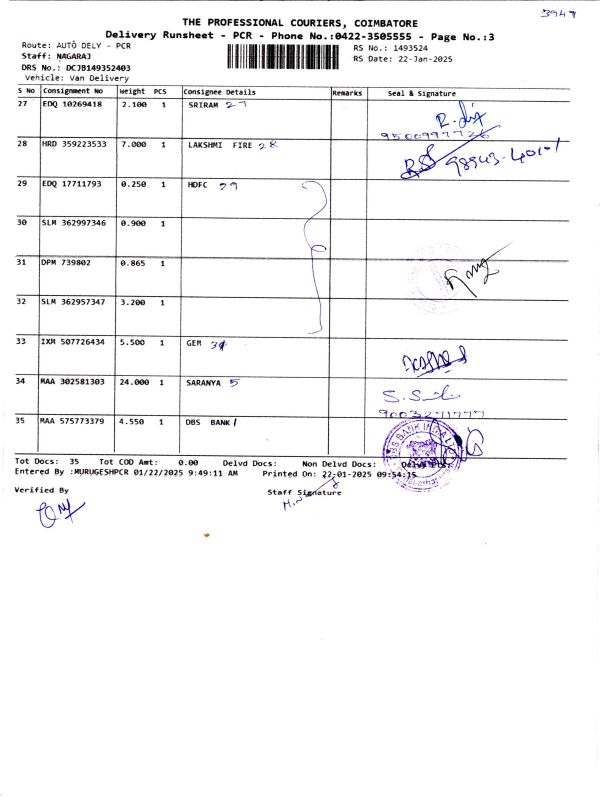 3947
THE PROFESSIONAL COURIERS, COIMBATORE
Delivery Runsheet - PCR - Phone No.:0422-3505555 - Page No.:3
Route: AUTO DELY - PCR RS No.: 1493524
Staff: NAGARAJ RS Date: 22-Jan-2025
DRS No.: DCJB149352403
Vehicle: Van Delivery
S No Consignment No Weight PCS Consignee Details Remarks Seal & Signature
27 EDQ 10269418 2.100 1 SRIRAM 27
9500997726
28 HRD 359223533 7.000 1 LAKSHMI FIRE 28 98943-40101
29 EDQ 17711793 0.250 1 HDFC 29
30 SLM 362997346 0.900 1
31 DPM 739802 0.865 1
32 SLM 362957347 3.200 1
33 IXM 507726434 5.500 1 GEM
34 MAA 302581303 24.000 1 SARANYA 5
35 MAA 575773379 4.550 1 DBS BANK
DBS BANK INDIA
Tot Docs: 35 Tot COD Amt: 0.00 Delvd Docs: Non Delvd Docs:
Entered By :MURUGESHPCR 01/22/2025 9:49:11 AM Printed On: 22-01-2025 09:54:15
Verified By Staff Signature